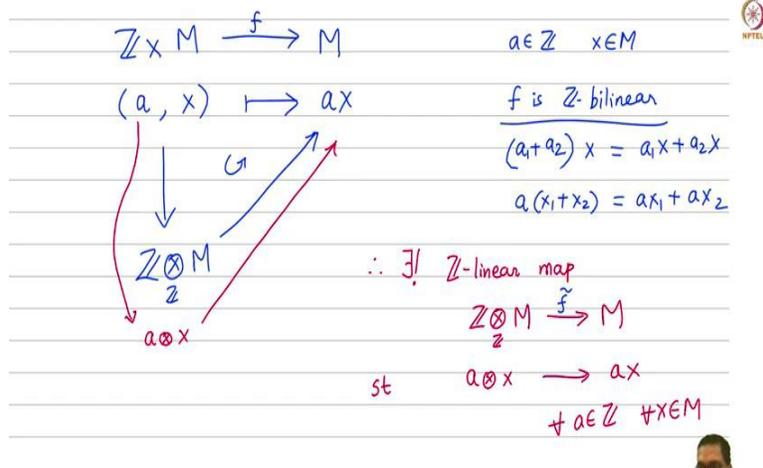 ℤ × M —f→ M a∈ℤ x∈M
(a, x) ⟼ ax f is ℤ-bilinear
(a₁+a₂) x = a₁x + a₂x
a(x₁+x₂) = ax₁ + ax₂
ℤ⊗M
ℤ
a⊗x
∴ ∃! ℤ-linear map
ℤ⊗M —f̃→ M
ℤ
st a⊗x ⟶ ax
∀ a∈ℤ ∀x∈M
NPTEL